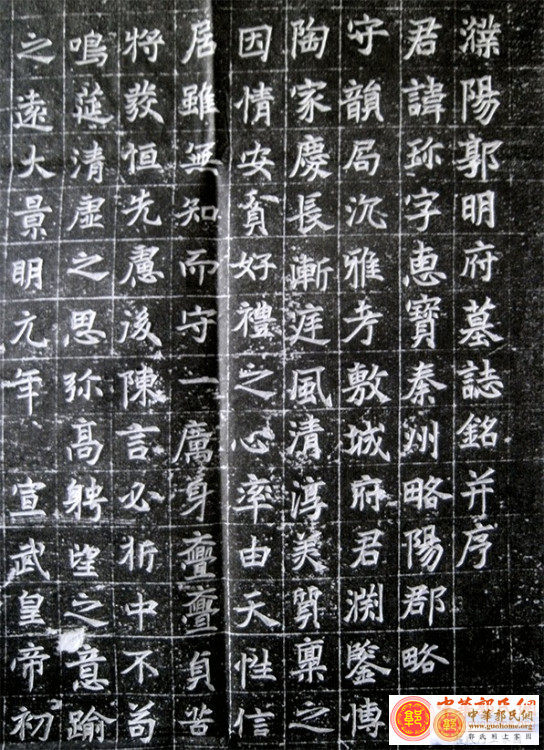 濮陽郭明府墓誌銘并序
君諱珎字恵寶秦州略陽郡略
守韻局沉雅考敷城府君渕鑒慱
陶家慶長漸庭風清淳美質稟之
因情安貧好禮之心率由天性信
居雖無知而守一厲身亹亹貞苦
将發恒先慮後陳言必析中不苟
鳴莚清虛之思弥髙騁望之意踰
之遠大景明元年 宣武皇帝初
中華郭氏網
www.guohome.com
郭氏網上家園